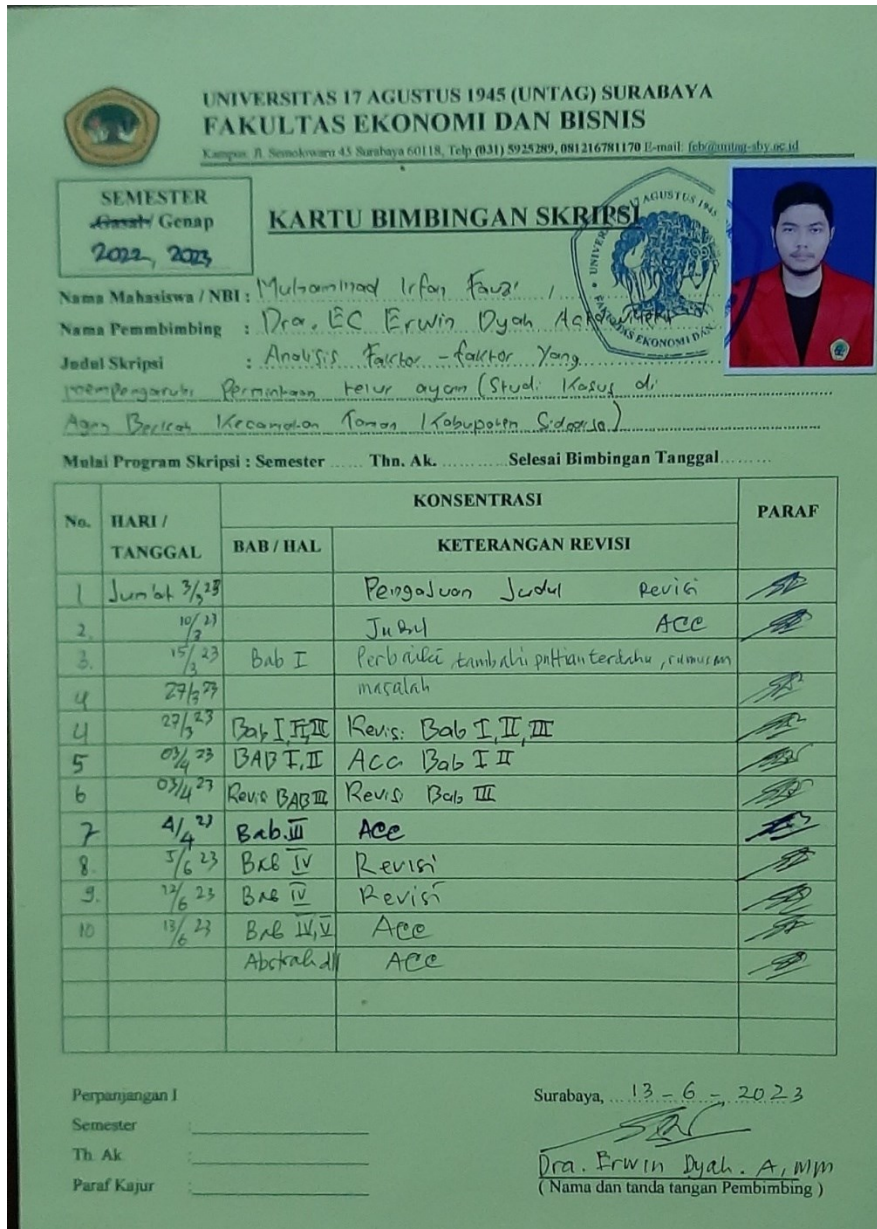 UNIVERSITAS 17 AGUSTUS 1945 (UNTAG) SURABAYA
FAKULTAS EKONOMI DAN BISNIS
Kampus: Jl. Semolowaru 45 Surabaya 60118, Telp (031) 5925289, 081216781170 E-mail: feb@untag-sby.ac.id
SEMESTER
Gasal / Genap
2022, 2023
KARTU BIMBINGAN SKRIPSI
UNIVERSITAS 17 AGUSTUS 1945
FAKULTAS EKONOMI DAN
Nama Mahasiswa / NBI : Muhammad Irfan Fauzi /
Nama Pemmbimbing : Dra. EC Erwin Dyah
Judul Skripsi : Analisis Faktor - faktor Yang
mempengaruhi Permintaan telur ayam (Studi Kasus di
Agen Kecamatan Taman Kabupaten Sidoarjo)
Mulai Program Skripsi : Semester ...... Thn. Ak. ............ Selesai Bimbingan Tanggal.........
No. HARI / TANGGAL KONSENTRASI PARAF
BAB / HAL KETERANGAN REVISI
1 Jum'at 3/3 23 Pengajuan Judul Revisi
2. 10/3 23 Judul ACC
3. 15/3 23 Bab I Perbaiki, tambahi terdahu, rumusan
4 27/3 23 masalah
4 27/3 23 Bab I, II, III Revisi Bab I, II, III
5 03/4 23 BAB I, II Acc Bab I II
6 03/4 23 Revisi BAB III Revisi Bab III
7 4/4 23 Bab. III ACC
8. 5/6 23 Bab IV Revisi
9. 12/6 23 Bab IV Revisi
10 13/6 23 Bab IV, V ACC
Abstrak dll ACC
Perpanjangan I
Semester :
Th. Ak :
Paraf Kajur :
Surabaya, 13 - 6 - 2023
Dra. Erwin Dyah. A, MM
( Nama dan tanda tangan Pembimbing )